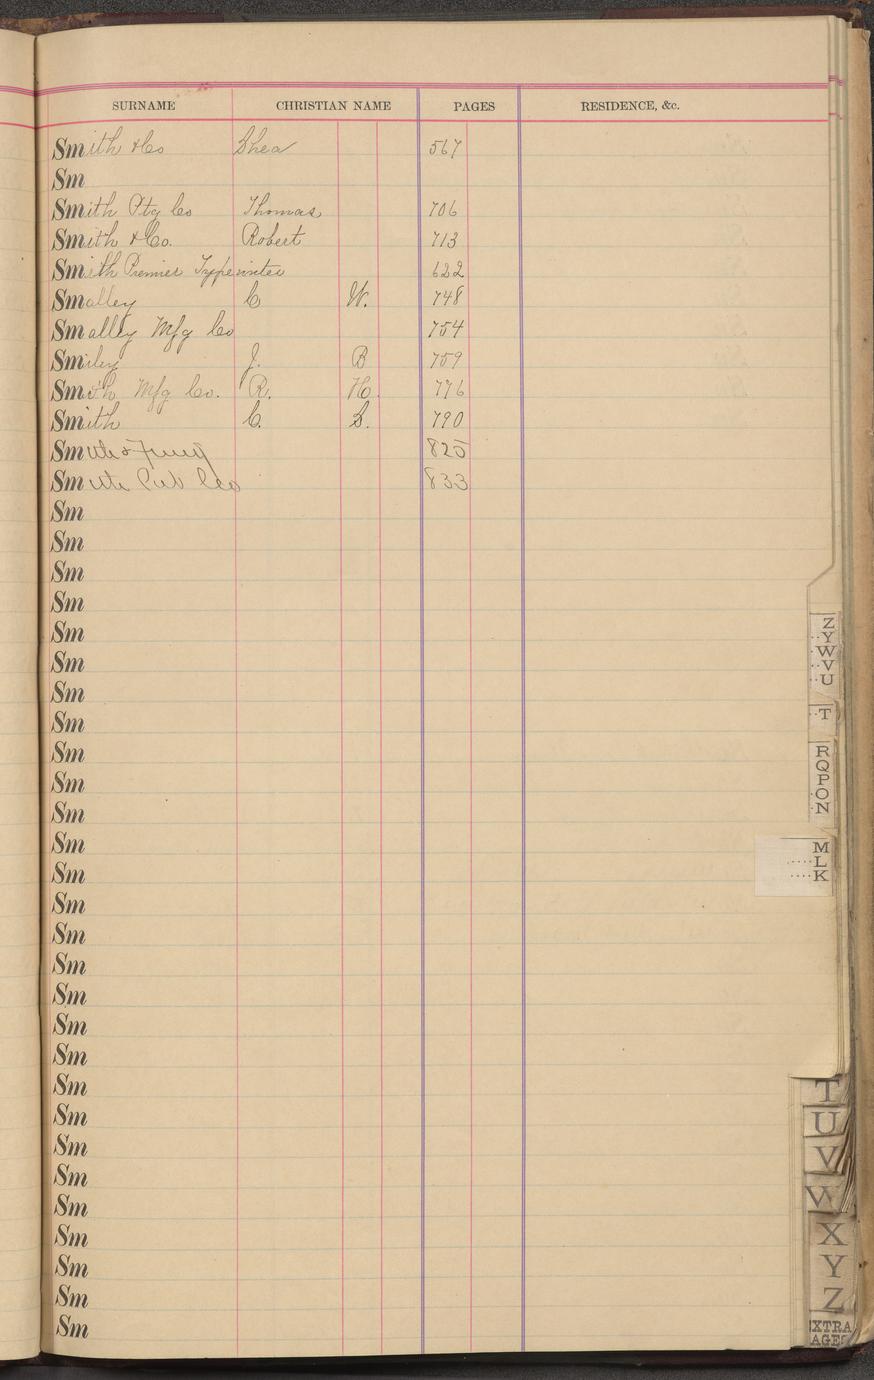 SURNAME CHRISTIAN NAME PAGES RESIDENCE, &c.
Smith & Co Shea 567
Sm
Smith Ptg Co Thomas 706
Smith & Co. Robert 713
Smith Premier Typewriter 622
Smalley C W. 748
Smalley Mfg Co 754
Smiley J. B 759
Smith Mfg Co. R. H. 776
Smith C. S. 790
Smith & 825
Smith Pub Co 833
Sm
Sm
Sm
Sm
Sm
Sm
Sm
Sm
Sm
Sm
Sm
Sm
Sm
Sm
Sm
Sm
Sm
Sm
Sm
Sm
Sm
Sm
Sm
Sm
Sm
Sm
Sm
Sm
Z
Y
W
V
U
T
R
Q
P
O
N
M
L
K
T
U
V
W
X
Y
Z
XTRA
AGES